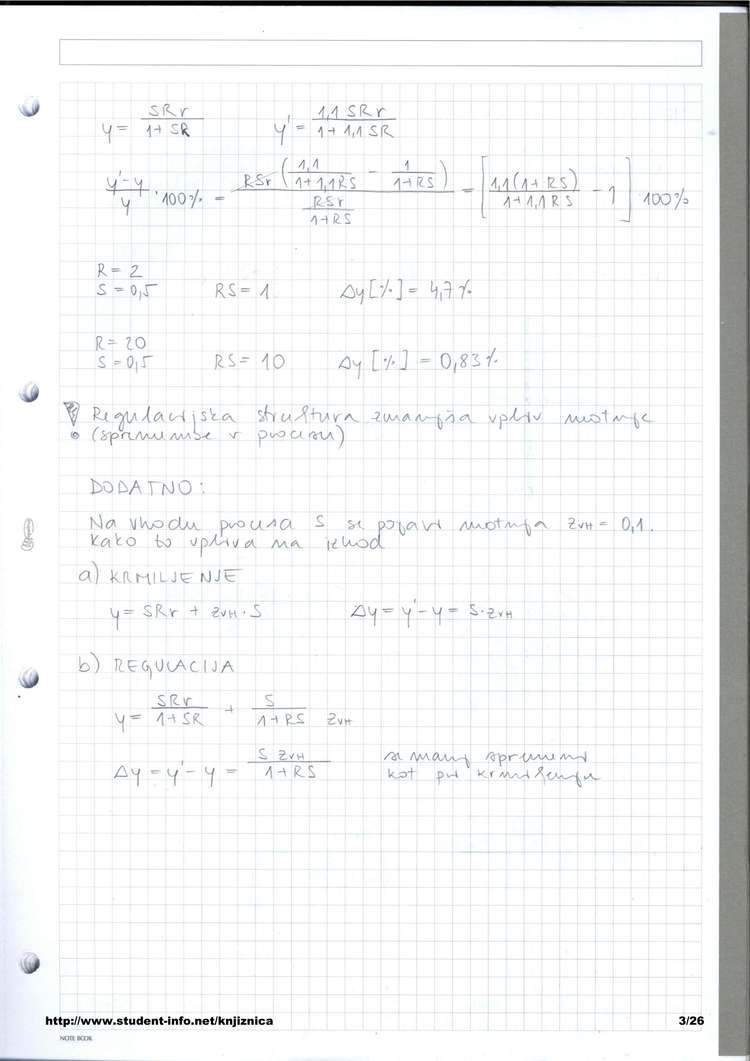 y = SRr / (1 + SR)    y' = 1,1 SRr / (1 + 1,1 SR)
(y' - y) / y · 100% = RSr (1,1 / (1 + 1,1RS) - 1 / (1 + RS)) / (RSr / (1 + RS)) = [1,1(1 + RS) / (1 + 1,1RS) - 1] 100%
R = 2
S = 0,5    RS = 1    Δy[%] = 4,7%
R = 20
S = 0,5    RS = 10    Δy[%] = 0,83%
Regulacijska struktura zmanjša vpliv motnje
(spremembe v procesu)
DODATNO:
Na vhodu procesa S se pojavi motnja zVH = 0,1.
Kako to vpliva na izhod
a) KRMILJENJE
y = SRr + zVH · S    Δy = y' - y = S·zVH
b) REGULACIJA
y = SRr / (1 + SR) + S / (1 + RS) zVH
Δy = y' - y = S zVH / (1 + RS)    se manj spremeni
kot pri krmiljenju
http://www.student-info.net/knjiznica    3/26
NOTE BOOK